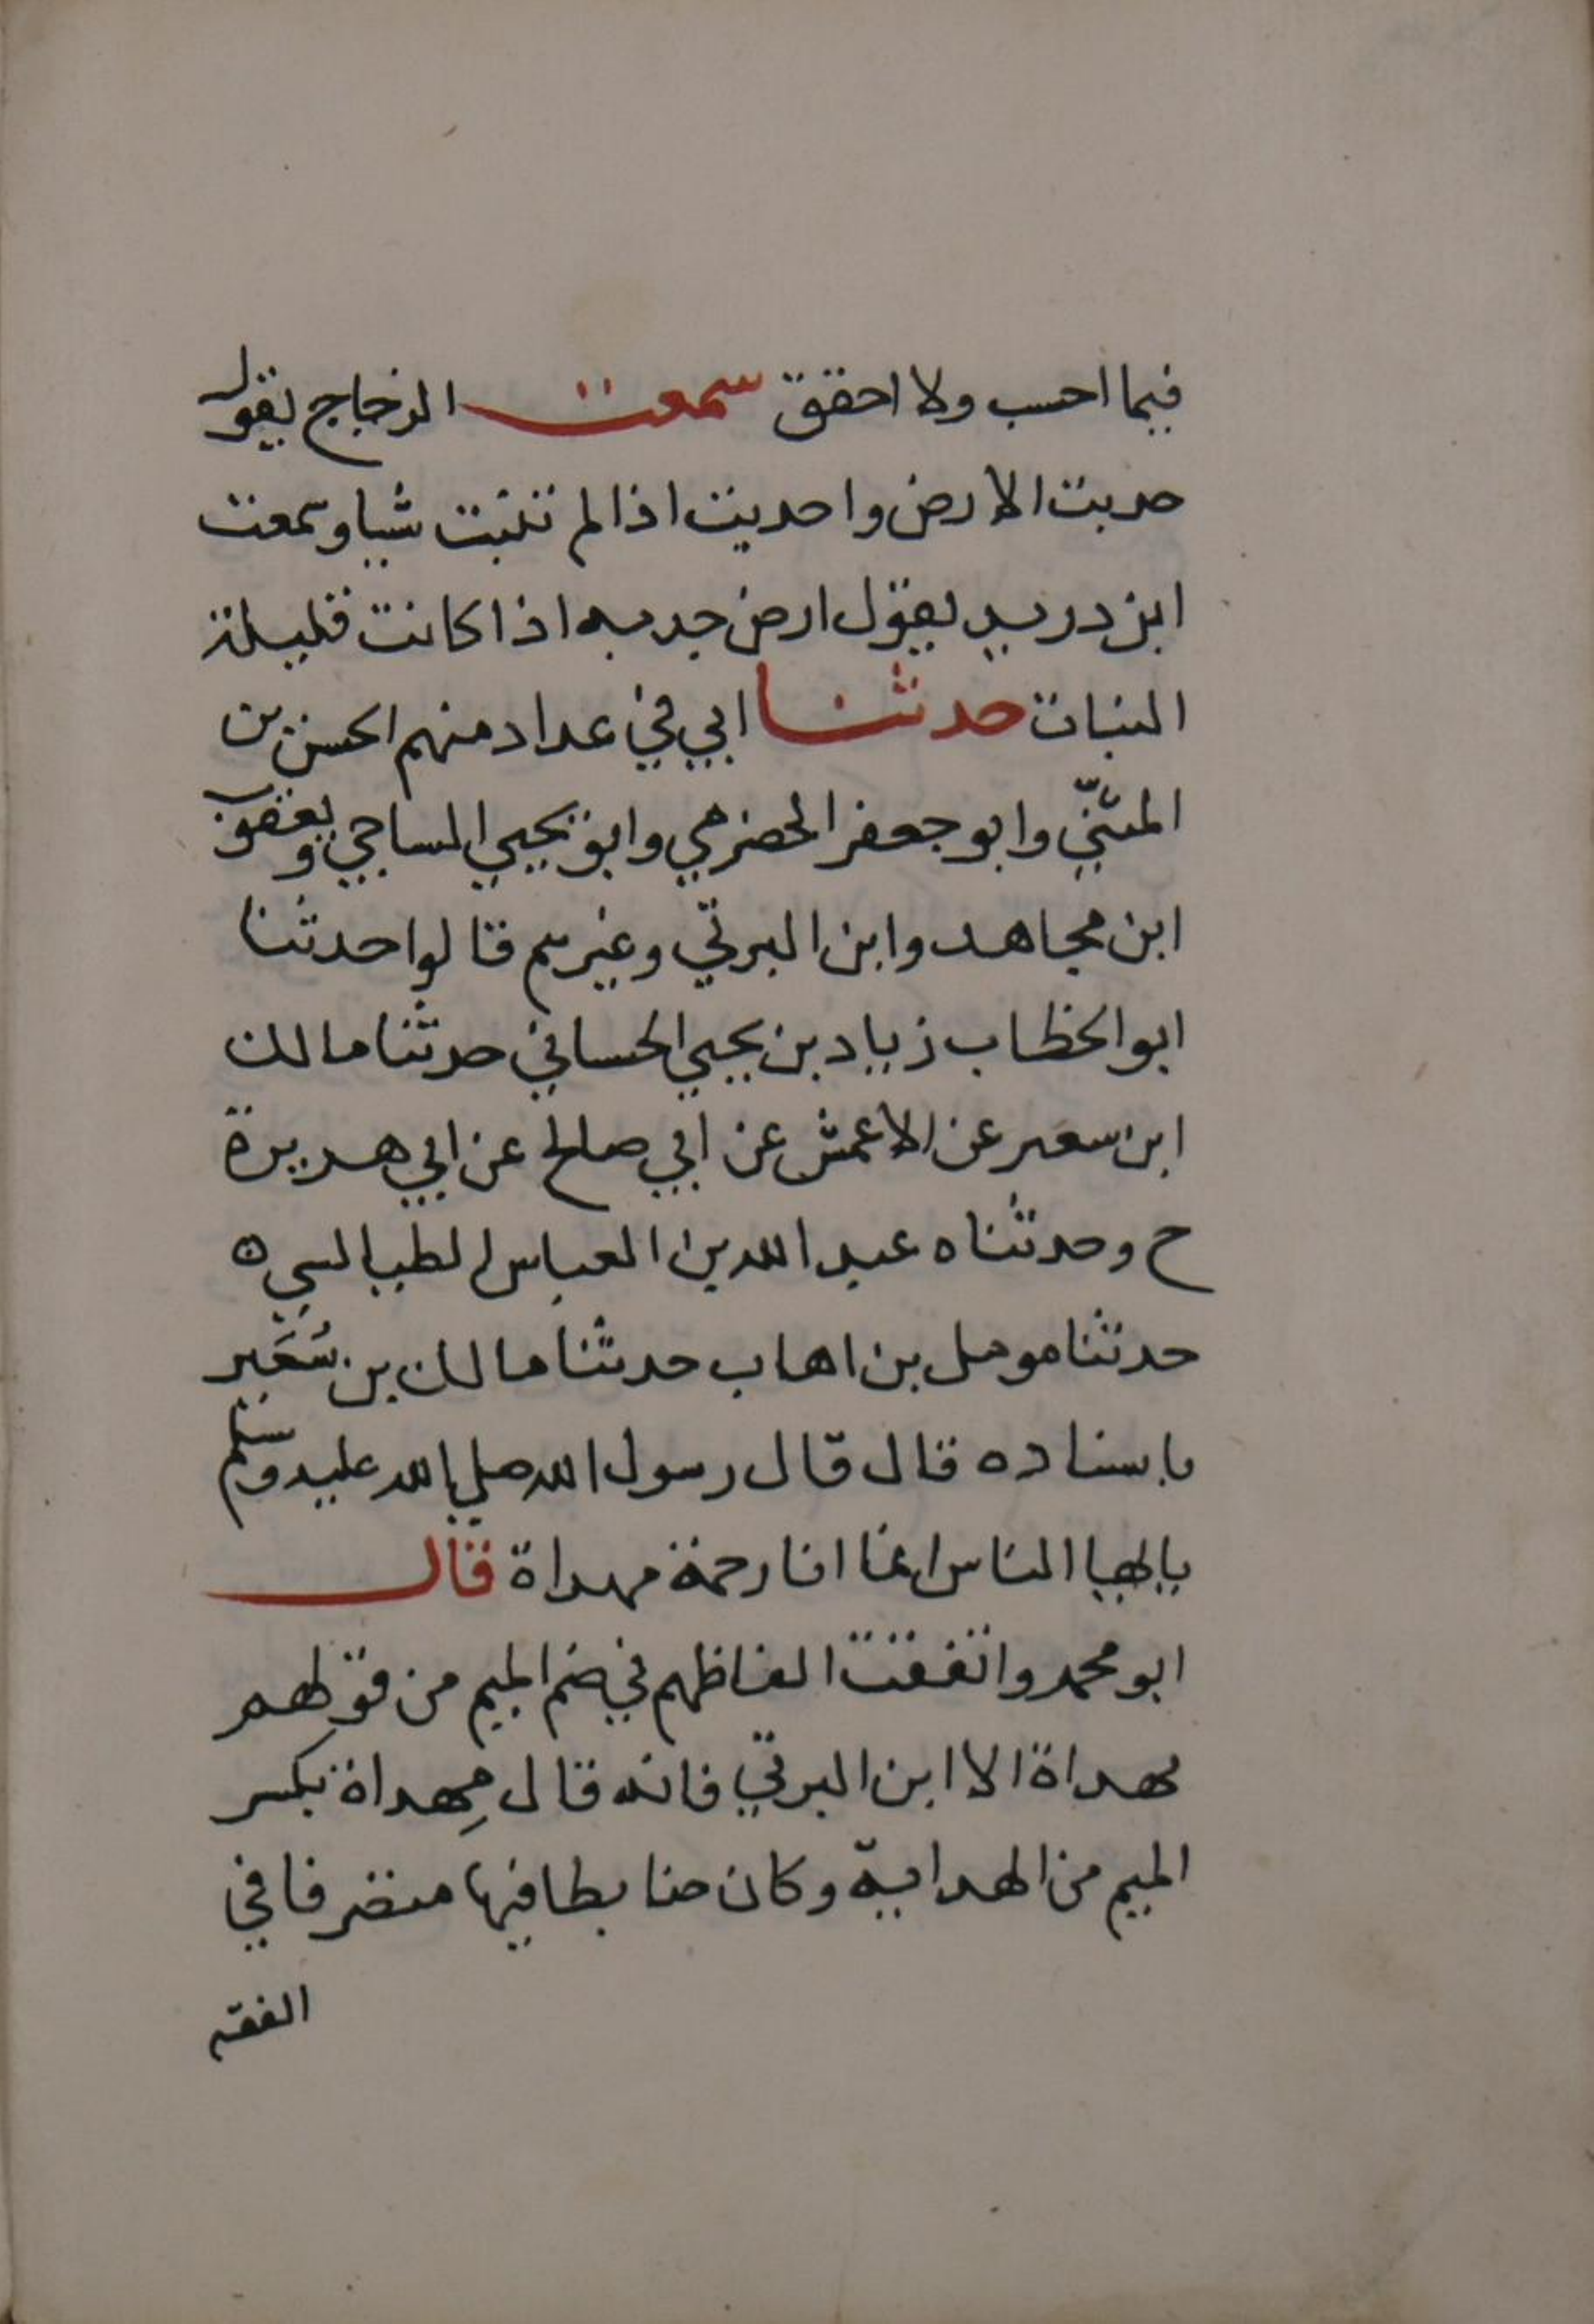 فيما احسب ولا احقق سمعت الزجاج يقول
جدبت الارض واجدبت اذا لم تنبت شيا وسمعت
ابن دريد يقول ارض جدبه اذا كانت قليلة
النبات حدثنا ابي في عداد منهم الحسن بن
المثنّي وابو جعفر الحضرمي وابو يحيي الساجي ويعقوب
ابن مجاهد وابن البرتي وغيرهم قالوا حدثنا
ابو الخطاب زياد بن يحيي الحساني حدثنا مالك
ابن سعير عن الاعمش عن ابي صالح عن ابي هريرة
ح وحدثناه عبد الله بن العباس الطيالسي ه
حدثنا مومل بن اهاب حدثنا مالك بن سُعَير
باسناده قال قال رسول الله صلي الله عليه وسلم
يا ايها الناس انما انا رحمة مهداة قال
ابو محمد واتفقت الفاظهم في ضم الميم من قولهم
مهداة الا ابن البرتي فانه قال مِهداة بكسر
الميم من الهداية وكان ضابطا فيها متصرفا في
الفقه